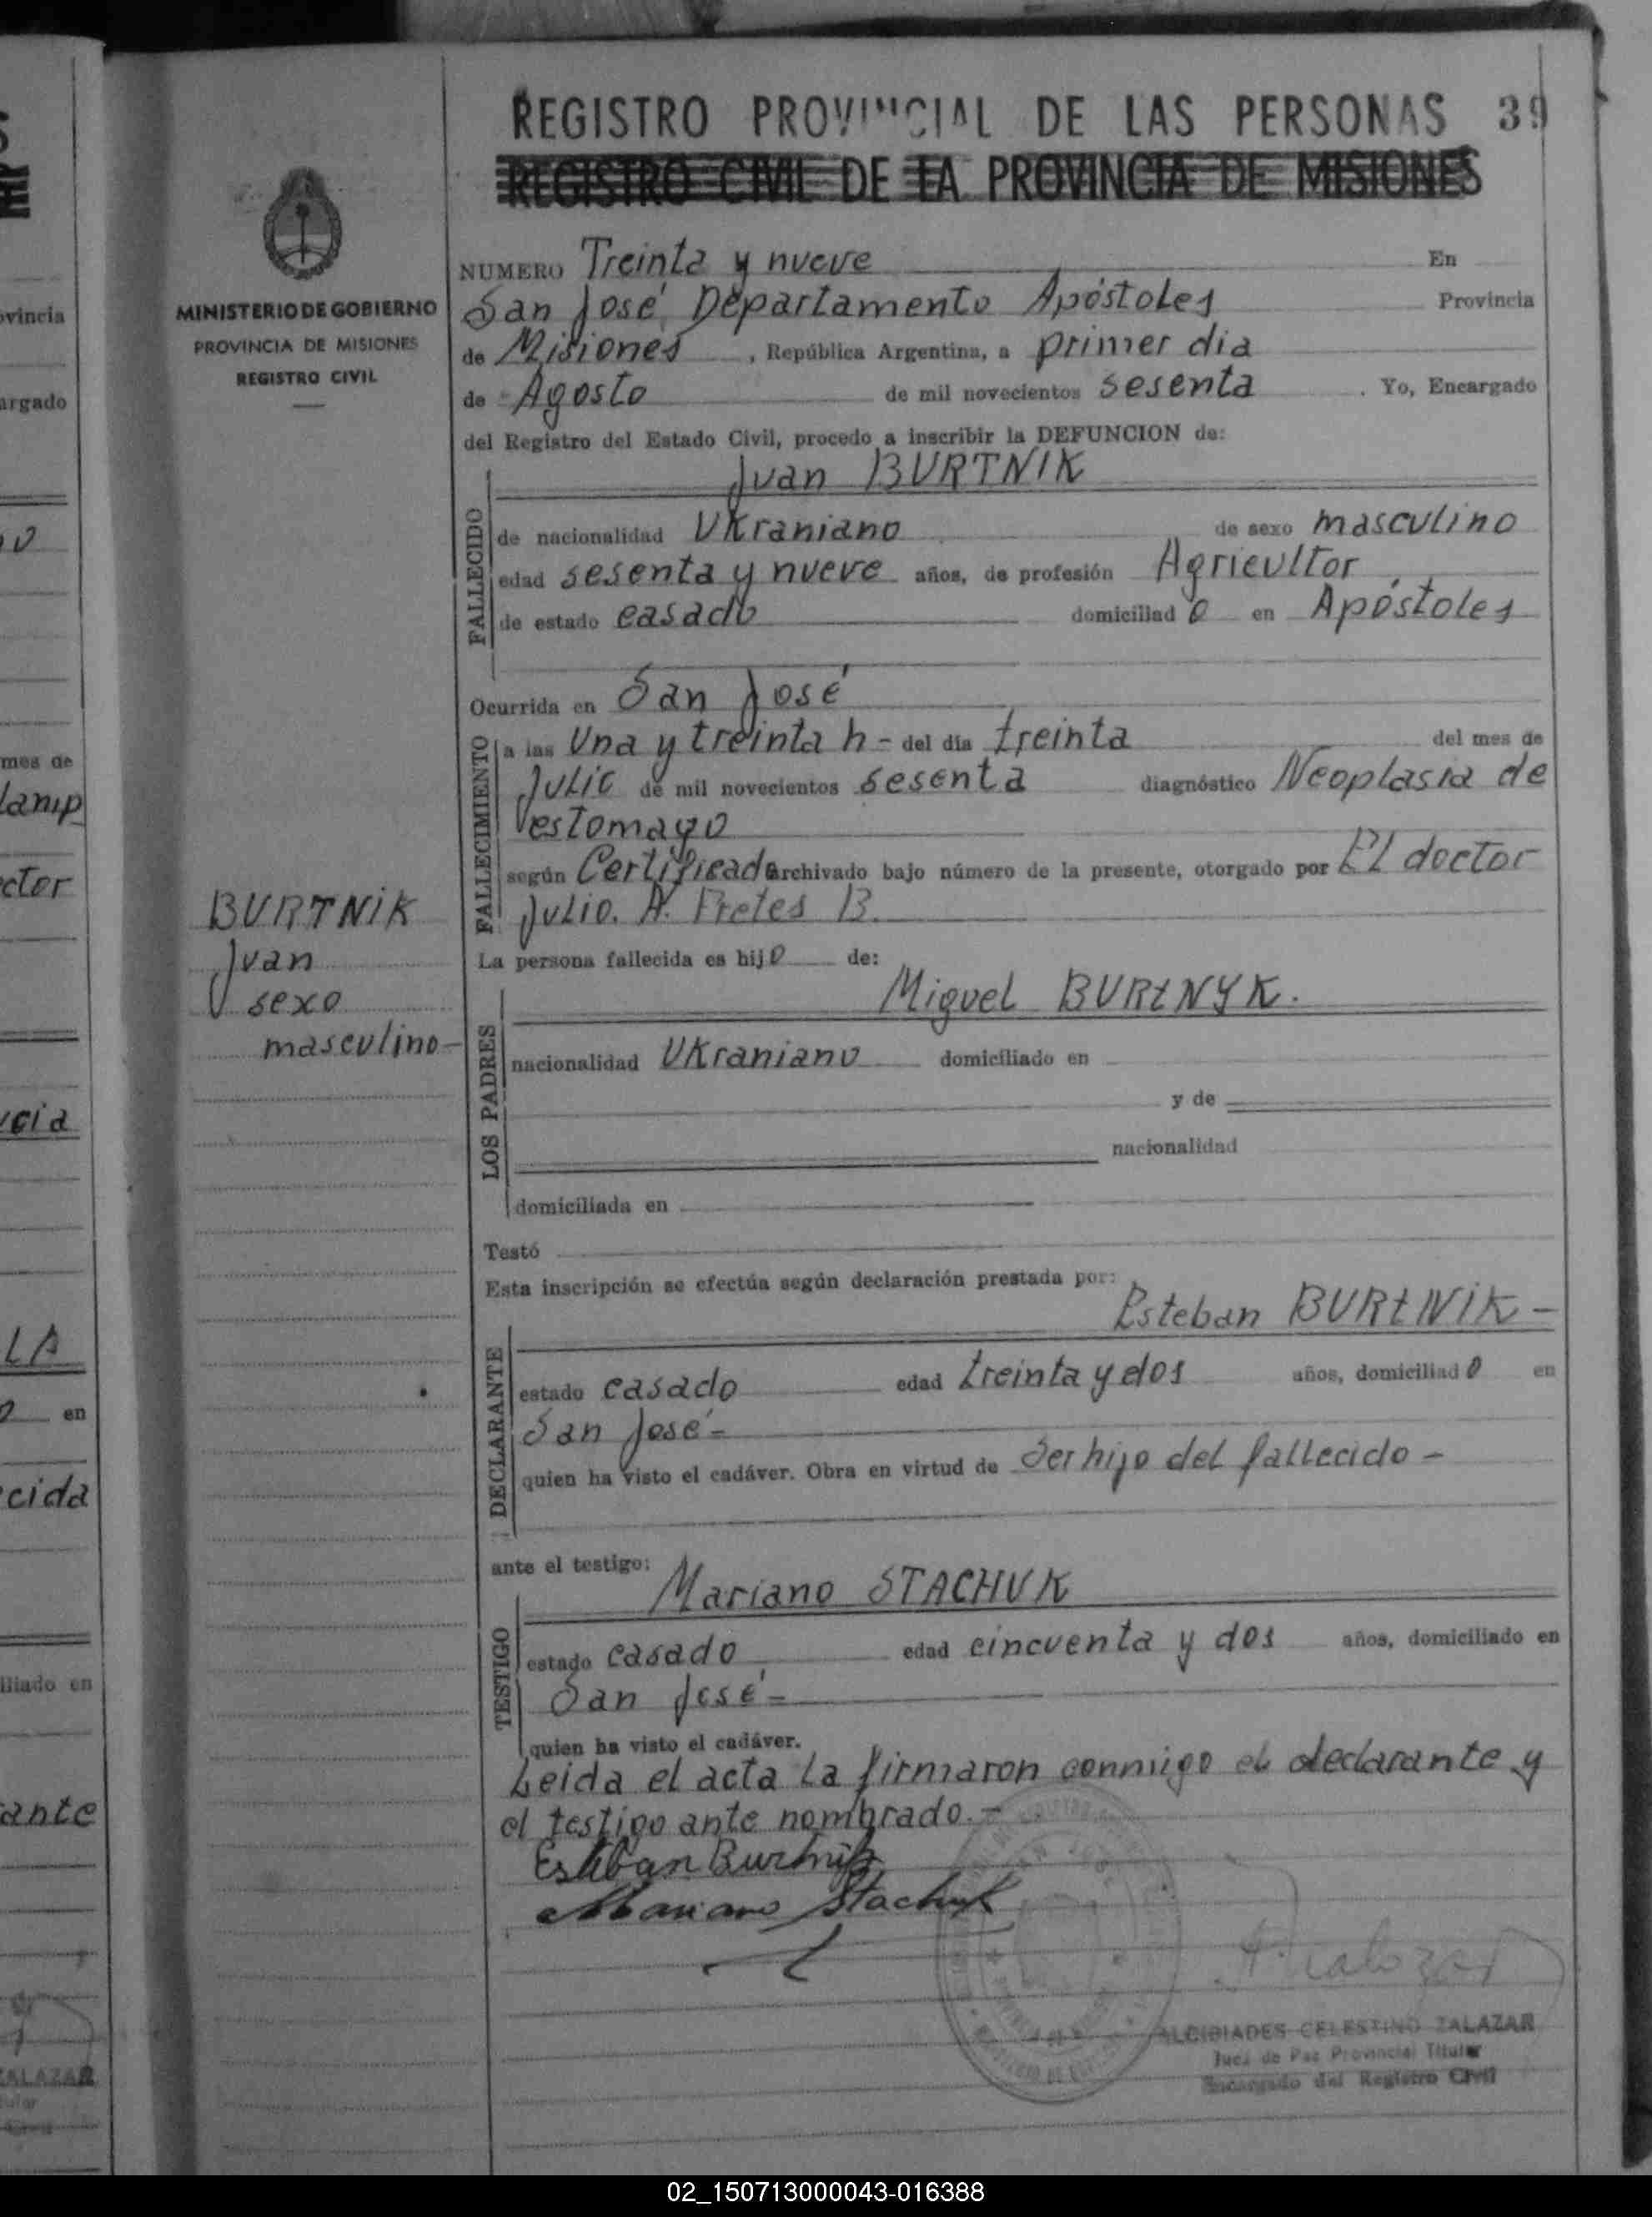 REGISTRO PROVINCIAL DE LAS PERSONAS 39
REGISTRO CIVIL DE LA PROVINCIA DE MISIONES
MINISTERIO DE GOBIERNO
PROVINCIA DE MISIONES
REGISTRO CIVIL
BURTNIK
Juan
sexo
masculino-
NUMERO Treinta y nueve En
San José Departamento Apóstoles Provincia
de Misiones, República Argentina, a primer dia
de Agosto de mil novecientos sesenta. Yo, Encargado
del Registro del Estado Civil, procedo a inscribir la DEFUNCION de:
Juan BURTNIK
FALLECIDO
de nacionalidad UKraniano de sexo masculino
edad sesenta y nueve años, de profesión Agricultor
de estado casado domiciliad o en Apóstoles
Ocurrida en San José
FALLECIMIENTO
a las Una y treinta h- del día treinta del mes de
Julio de mil novecientos sesenta diagnóstico Neoplasia de
estomago
según Certificado archivado bajo número de la presente, otorgado por El doctor
Julio. A. Fretes B.
La persona fallecida es hijo de:
Miguel BURtNYK.
LOS PADRES
nacionalidad UKraniano domiciliado en
y de
nacionalidad
domiciliada en
Testó
Esta inscripción se efectúa según declaración prestada por:
Esteban BURtNiK-
DECLARANTE
estado casado edad treinta y dos años, domiciliad o en
San José-
quien ha visto el cadáver. Obra en virtud de Ser hijo del fallecido-
ante el testigo:
Mariano STACHUK
TESTIGO
estado casado edad cincuenta y dos años, domiciliado en
San José-
quien ha visto el cadáver.
Leida el acta la firmaron conmigo el declarante y
el testigo ante nombrado.-
Esteban Burtnik
Mariano Stachuk
ALCIBIADES CELESTINO ZALAZAR
Juez de Paz Provincial Titular
Encargado del Registro Civil
02_150713000043-016388